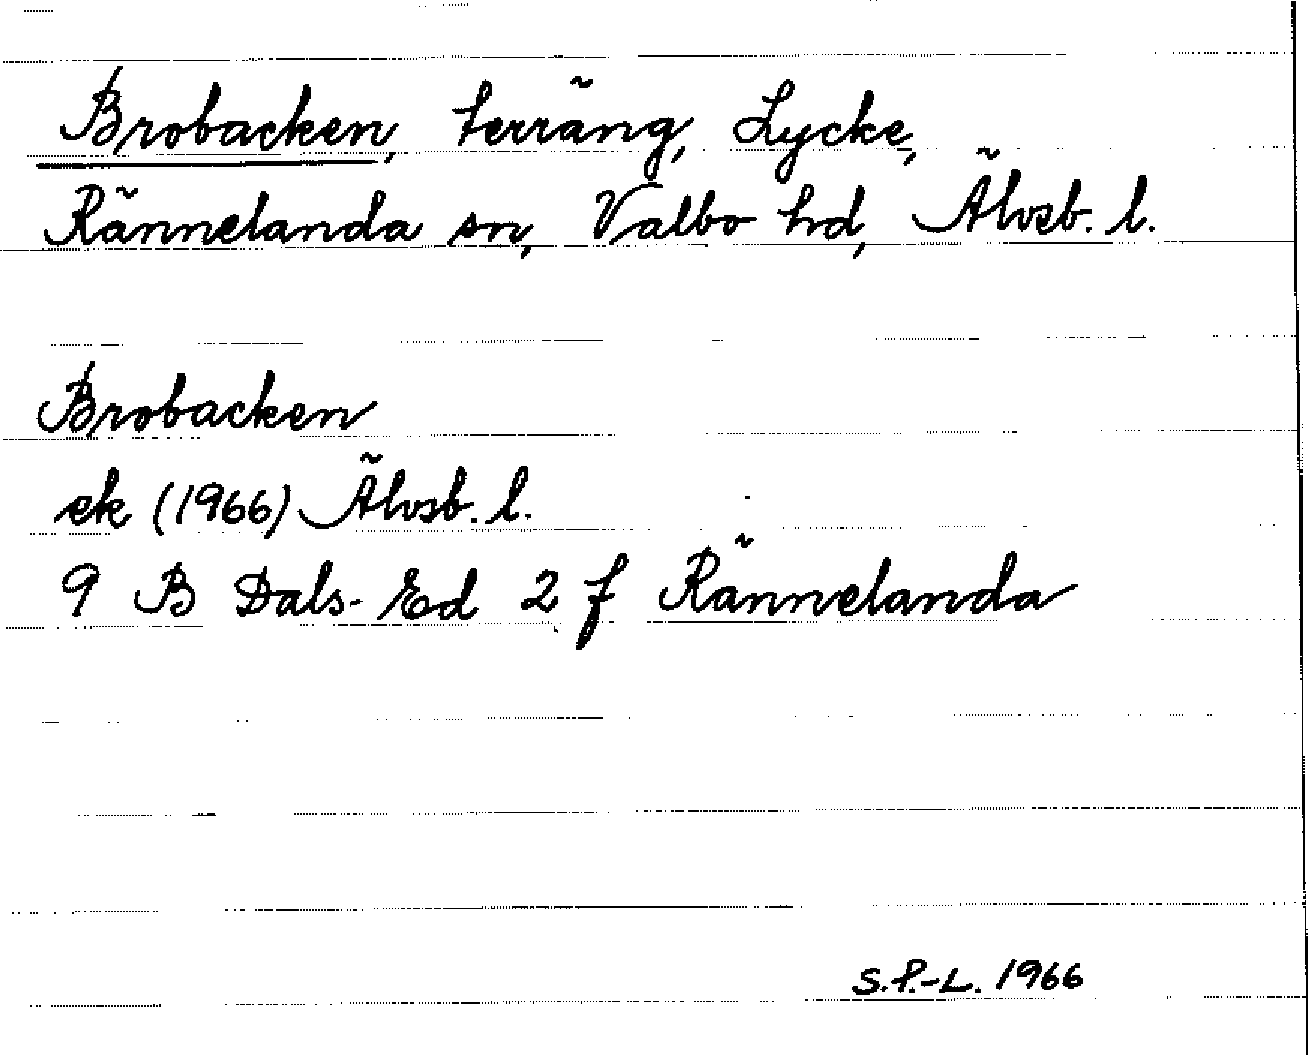 Brobacken, terräng, Lycke,
Rännelanda sn, Valbo hd, Älvsb. l.
Brobacken
ek (1966) Älvsb. l.
9 B Dals-Ed 2 f Rännelanda
S.P.-L. 1966